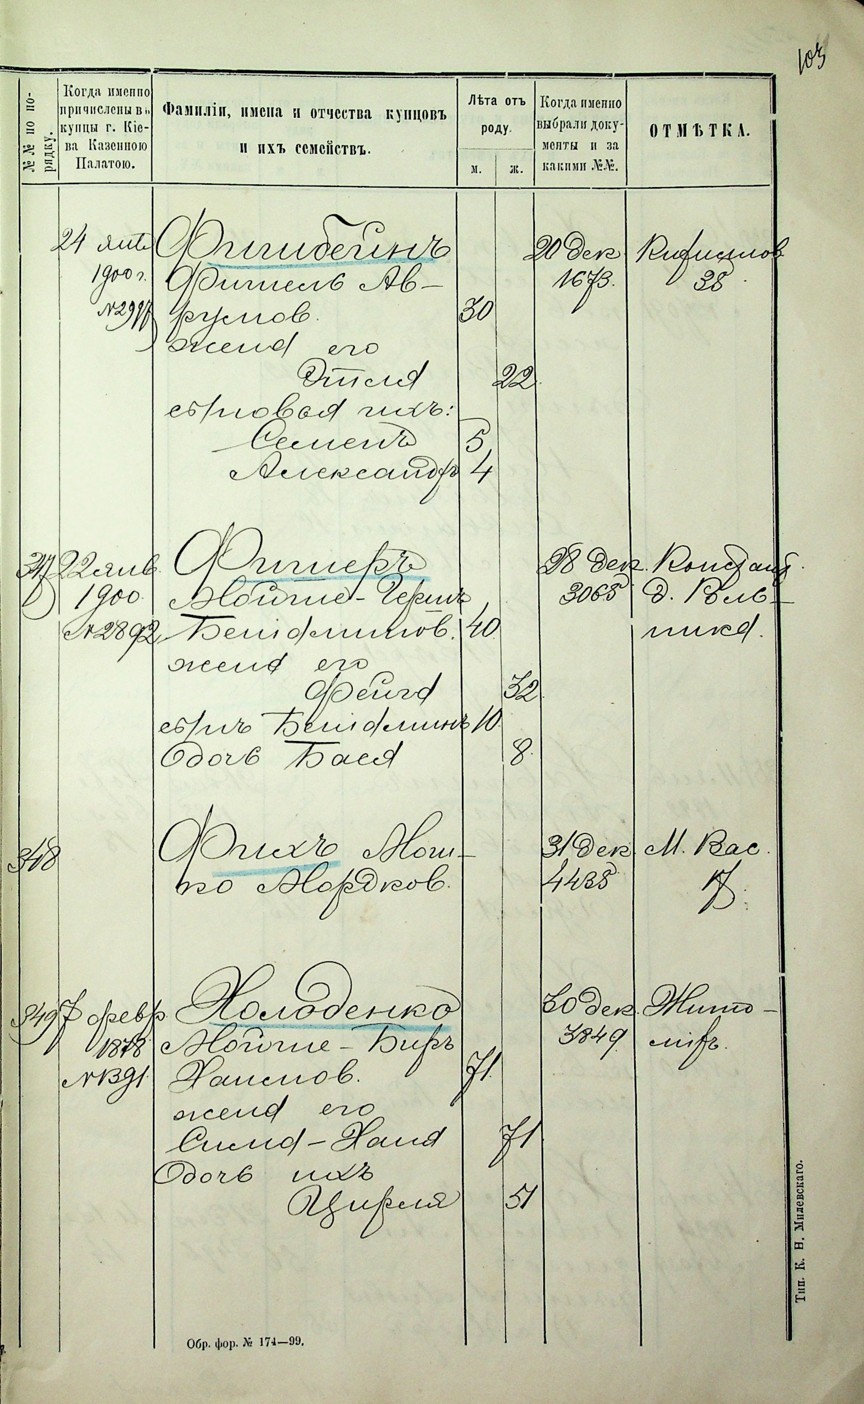 103
№№ по по-
рядку.
Когда именно
причислены въ
купцы г. Кіе-
ва Казенною
Палатою.
Фамиліи, имена и отчества купцовъ
и ихъ семействъ.
Лѣта отъ
роду.
м.
ж.
Когда именно
выбрали доку-
менты и за
какими №№.
ОТМѢТКА.
24 янв
1900 г.
Фишель Ав-
румов.
30
жена его
Этля
22
сыновья ихъ:
Семенъ
5
Александръ
4
20 дек
1673.
38.
22 янв.
1900
№2892
Фишеръ
Мойше-Герш
Беньяминов.
40
жена его
Фейга
32
сынъ Беньяминъ
10
дочь Бася
8.
28 дек.
3065
д. Воль-
ника.
348
Фихъ Мош-
ко Мордков.
31 дек
4438
М. Вас.
17.
349
7 февр
1878
№1391
Холоденко
Мойше-Беръ
Хаимов.
71
жена его
Сима-Хая
71
дочь ихъ
Цирля
51
30 дек.
3849
Жито-
мір.
Обр. фор. № 174—99.
Тип. К. Н. Милевскаго.